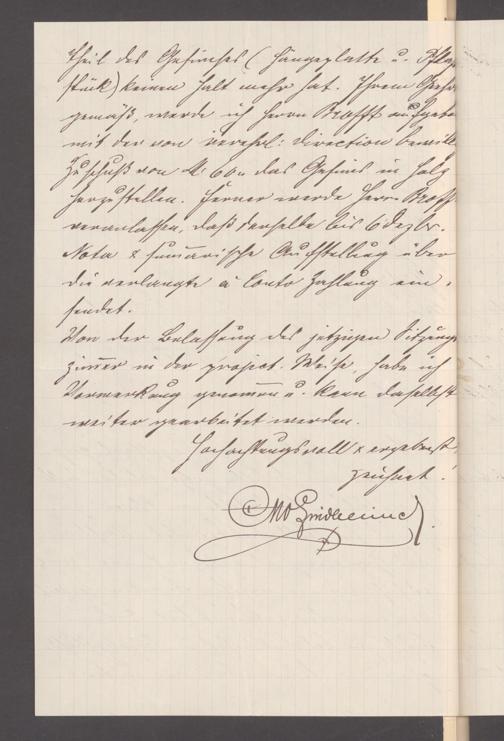 Theil des Gesimses (Hängeplatte u.
stück) keinen Halt mehr hat. Ihrem
gemäß, werde ich Herrn
mit der von verehrl: Direction
Zuschuß von M 60,, das Gesims in Holz
herzustellen. Ferner werde Herrn
veranlassen, daß derselbe bis 6 Dezbr.
Nota & sumarische Aufstellung über
die verlangte à Conto Zahlung ein-
sendet.
Von der Belassung des jetzigen Sitzungs
zimer in der project. Weise, habe ich
Vormerkung genomen u. kann daselbst
weiter gearbeitet werden.
Hochachtungsvoll & ergebenst
zeichnet!
Otto